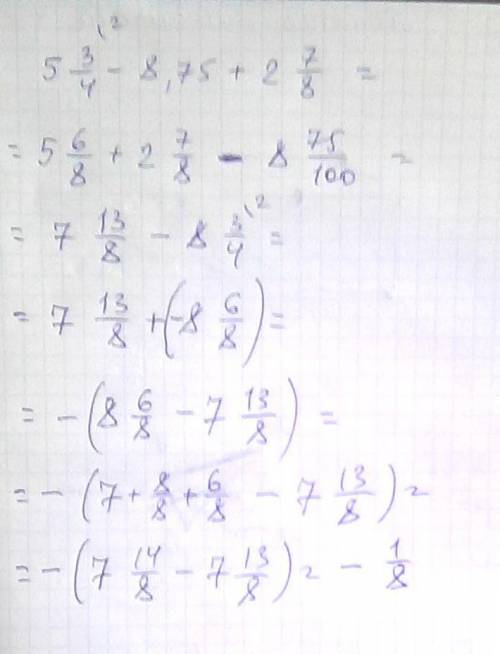 5 3/4 \2 - 8,75 + 2 7/8 =
= 5 6/8 + 2 7/8 - 8 75/100 =
= 7 13/8 - 8 3/4 \2 =
= 7 13/8 + (-8 6/8) =
= - (8 6/8 - 7 13/8) =
= - (7 + 8/8 + 6/8 - 7 13/8) =
= - (7 14/8 - 7 13/8) = - 1/8